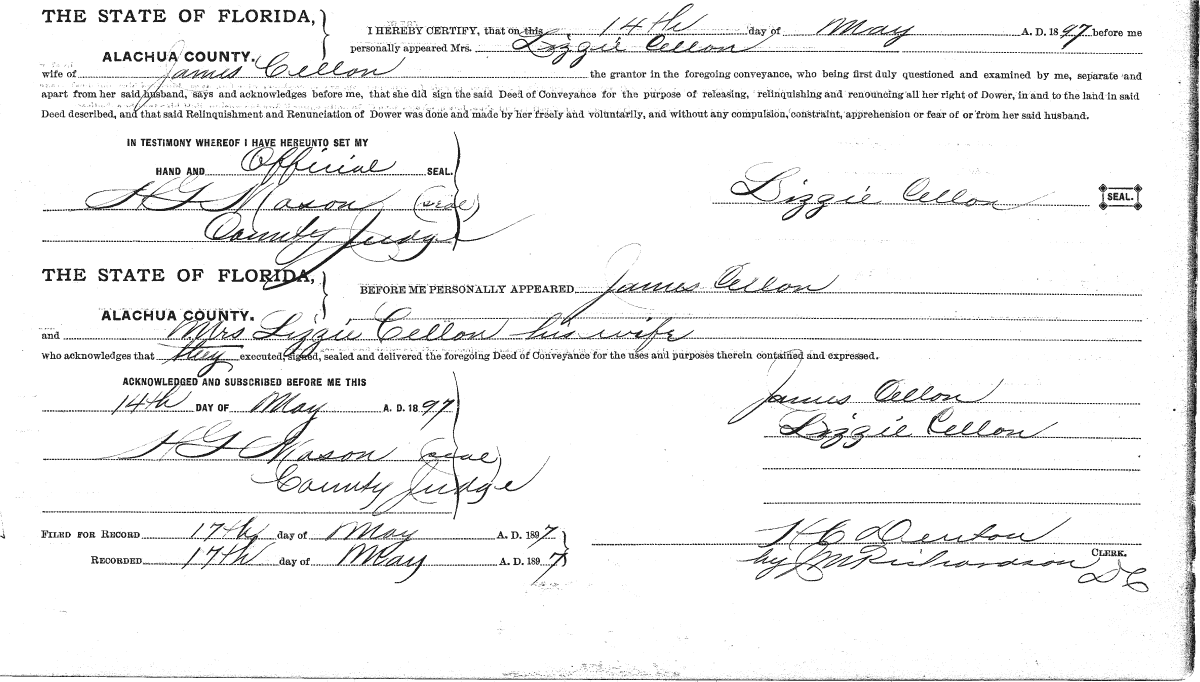 THE STATE OF FLORIDA,
ALACHUA COUNTY.
I HEREBY CERTIFY, that on this 14th day of May A. D. 1897 before me
personally appeared Mrs. Lizzie Cellon
wife of James Cellon the grantor in the foregoing conveyance, who being first duly questioned and examined by me, separate and
apart from her said husband, says and acknowledges before me, that she did sign the said Deed of Conveyance for the purpose of releasing, relinquishing and renouncing all her right of Dower, in and to the land in said
Deed described, and that said Relinquishment and Renunciation of Dower was done and made by her freely and voluntarily, and without any compulsion, constraint, apprehension or fear of or from her said husband.
IN TESTIMONY WHEREOF I HAVE HEREUNTO SET MY
HAND AND Official SEAL.
H G Mason (seal)
County Judge
Lizzie Cellon SEAL.
THE STATE OF FLORIDA,
ALACHUA COUNTY.
BEFORE ME PERSONALLY APPEARED James Cellon
and Mrs Lizzie Cellon his wife
who acknowledges that they executed, signed, sealed and delivered the foregoing Deed of Conveyance for the uses and purposes therein contained and expressed.
ACKNOWLEDGED AND SUBSCRIBED BEFORE ME THIS
14th DAY OF May A. D. 1897
H G Mason (seal)
County Judge
James Cellon
Lizzie Cellon
FILED FOR RECORD 17th day of May A. D. 1897
RECORDED 17th day of May A. D. 1897
H C Denton
CLERK.
by J M Richardson D C